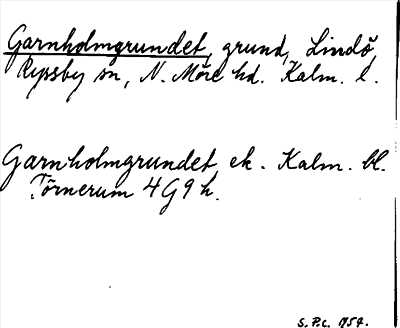 Garnholmgrundet, grund, Lindö
Ryssby sn, N. Möre hd. Kalm. l.
Garnholmgrundet ek. Kalm. bl.
Törnerum 4G9h.
S.P.C. 1954.